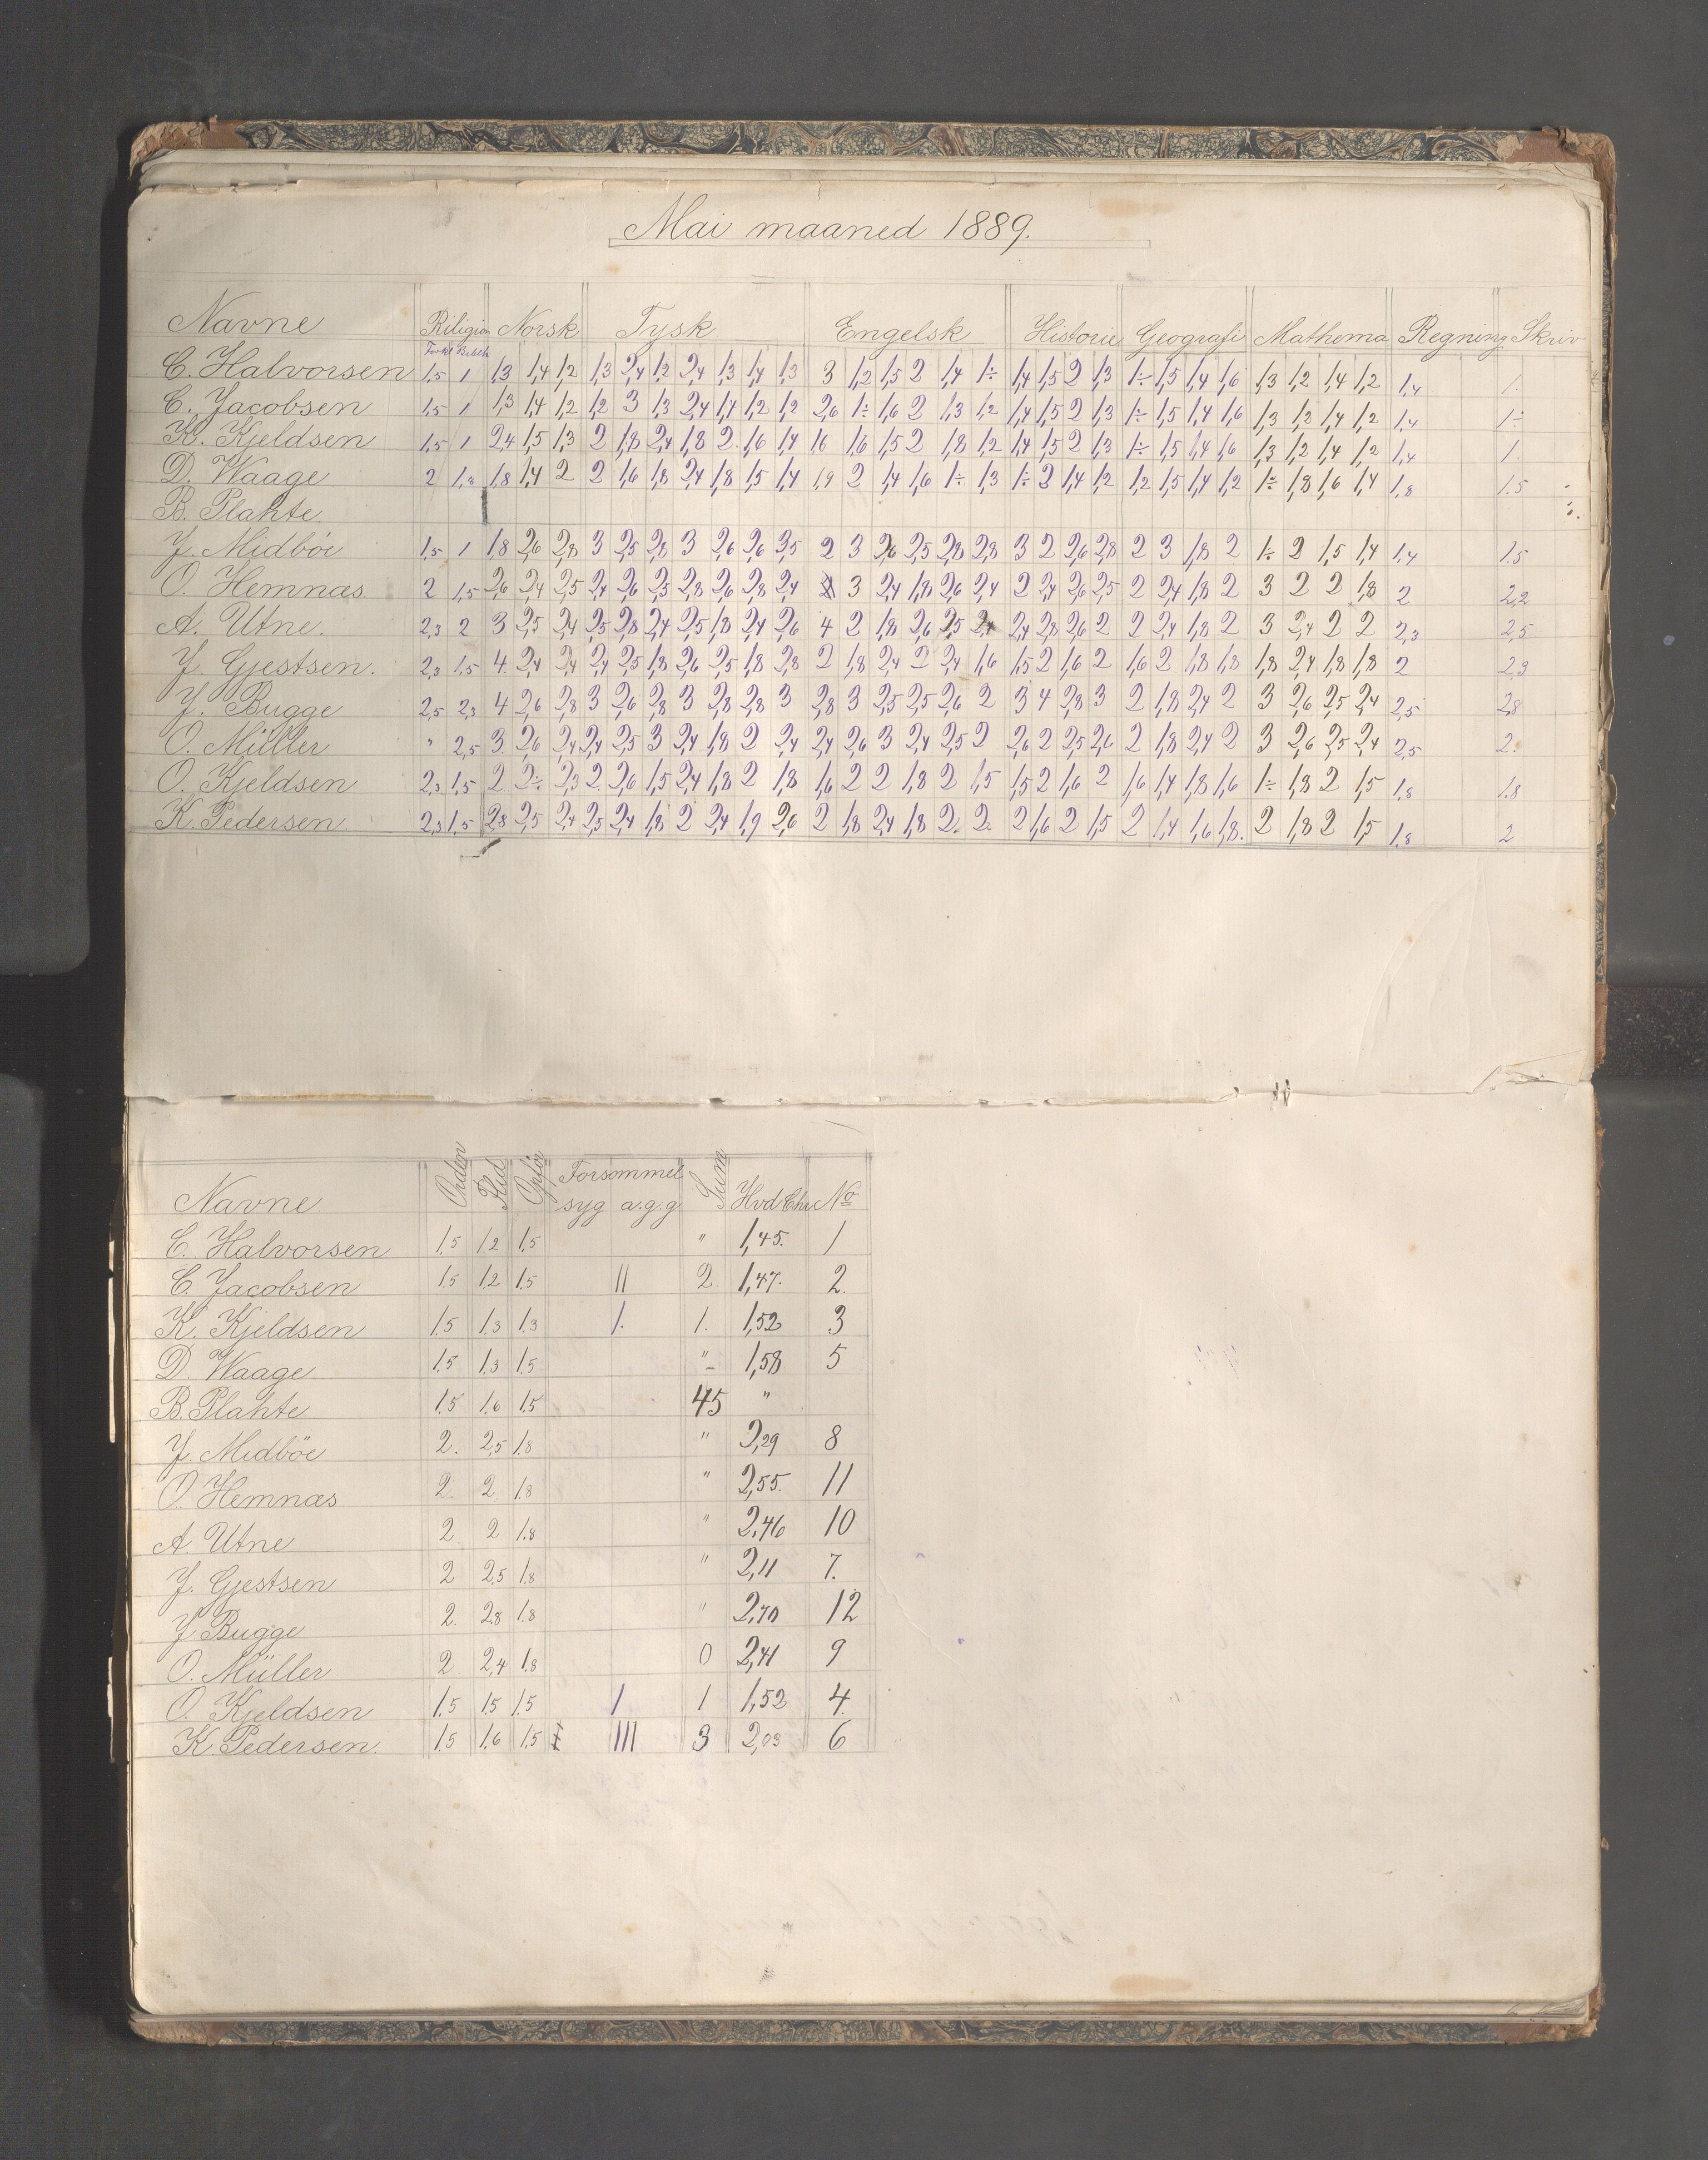 Mai maaned 1889.
Navne Riligion Norsk Tysk Engelsk Historie Geografi Mathema Regning Skriv
Forkl Bibelh
C. Halvorsen 1,5 1 1,3 1,4 1,2 1,3 2,4 1,2 2,4 1,3 1,4 1,3 3 1,2 1,5 2 1,4 1÷ 1,4 1,5 2 1,3 1÷ 1,5 1,4 1,6 1,3 1,2 1,4 1,2 1,4 1.
C. Jacobsen 1,5 1 1,3 1,4 1,2 1,2 3 1,3 2,4 1,4 1,2 1,2 2,6 1÷ 1,6 2 1,3 1,2 1,4 1,5 2 1,3 1÷ 1,5 1,4 1,6 1,3 1,2 1,4 1,2 1,4 1÷
K. Kjeldsen 1,5 1 2,4 1,5 1,3 2 1,8 2,4 1,8 2. 1,6 1,4 1,6 1,6 1,5 2 1,8 1,2 1,4 1,5 2 1,3 1÷ 1,5 1,4 1,6 1,3 1,2 1,4 1,2 1,4 1.
D. Waage 2 1,8 1,8 1,4 2 2 1,6 1,8 2,4 1,8 1,5 1,4 1,9 2 1,4 1,6 1÷ 1,3 1÷ 2 1,4 1,2 1,2 1,5 1,4 1,2 1÷ 1,8 1,6 1,4 1,8 1.5
B. Plahte.
J. Midböe 1,5 1 1,8 2,6 2,8 3 2,5 2,8 3 2,6 2,6 3,5 2 3 2,6 2,5 2,8 2,8 3 2 2,6 2,8 2 3 1,8 2 1÷ 2 1,5 1,4 1,4 1.5
O. Hemnæs. 2 1,5 2,6 2,4 2,5 2,4 2,6 2,3 2,8 2,6 2,8 2,4 3 2,4 1,8 2,6 2,4 2 2,4 2,6 2,5 2 2,4 1,8 2 3 2 2 1,8 2 2,2
A. Utne. 2,3 2 3 2,5 2,4 2,5 2,8 2,4 2,5 1,8 2,4 2,6 4 2 1,8 2,6 2,5 2,4 2,4 2,8 2,6 2 2 2,4 1,8 2 3 2,4 2 2 2,3 2,5
J. Gjestsen. 2,3 1.5 4. 2,4 2,4 2,4 2,5 1,8 2,6 2,5 1,8 2,8 2 1,8 2,4 2 2,4 1,6 1,5 2 1,6 2 1,6 2 1,8 1,8 1,8 2,4 1,8 1,8 2 2,3
J. Bugge 2,5 2,3 4 2,6 2,8 3 2,6 2,8 3 2,8 2,8 3 2,8 3 2,5 2,5 2,6 2 3 4 2,8 3 2 1,8 2,4 2 3 2,6 2,5 2,4 2,5 2,8
O. Müller " 2,5 3 2,6 2,4 2,4 2,5 3 2,4 1,8 2 2,4 2,4 2,6 3 2,4 2,5 2 2,6 2 2,5 2,6 2 1,8 2,4 2 3 2,6 2,5 2,4 2,5 2.
O. Kjeldsen 2,3 1,5 2. 2÷ 2,3 2 2,6 1,5 2,4 1,8 2 1,8 1,6 2 2 1,8 2 1,5 1,5 2 1,6 2 1,6 1,4 1,8 1,6 1÷ 1,8 2 1,5 1,8 1.8
K. Pedersen. 2,3 1,5 2,8 2,5 2,4 2,5 2,4 1,8 2 2,4 1,9 2,6 2 1,8 2,4 1,8 2. 2. 2 1,6 2 1,5 2 1,4 1,6 1,8. 2 1,8 2 1,5 1,8 2
Navne Orden Flid Opför Forsømmel Sum Hvd Chr No
syg a.g.g
C. Halvorsen 1.5 1.2 1.5 " 1,45. 1
C. Jacobsen 1.5 1.2 1.5 II 2. 1,47. 2.
K. Kjeldsen 1.5 1.3 1.3 I. 1. 1,52 3
D. Waage 1.5 1.3 1.5 " 1,58 5
B. Plahte 1.5 1.6 1.5 45 "
J. Midböe 2. 2,5 1.8 " 2,29 8
O. Hemnæs 2. 2. 1.8 " 2,55. 11
A. Utne 2 2 1.8 " 2,46 10
J. Gjestsen 2 2,5 1.8 " 2,11 7.
J. Bugge 2. 2,8 1.8 " 2,70 12
O. Müller 2 2,4 1.8 0 2,41 9
O. Kjeldsen 1.5 1.5 1.5 I 1 1,52 4.
K. Pedersen. 1.5 1.6 1.5 III 3 2,03 6